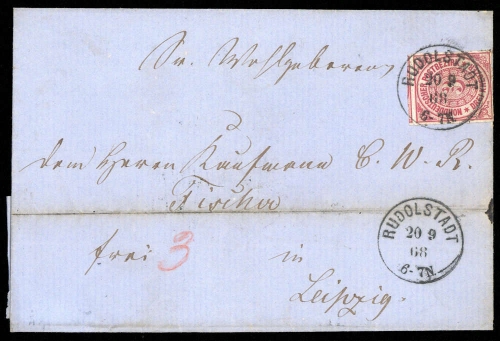 Sr. Wohlgeboren
RUDOLSTADT
20 9
68
6-7N.
dem Herrn Kaufmann C. W. R.
Fischer
frei 3 in
Leipzig.
RUDOLSTADT
20 9
68
6-7N.